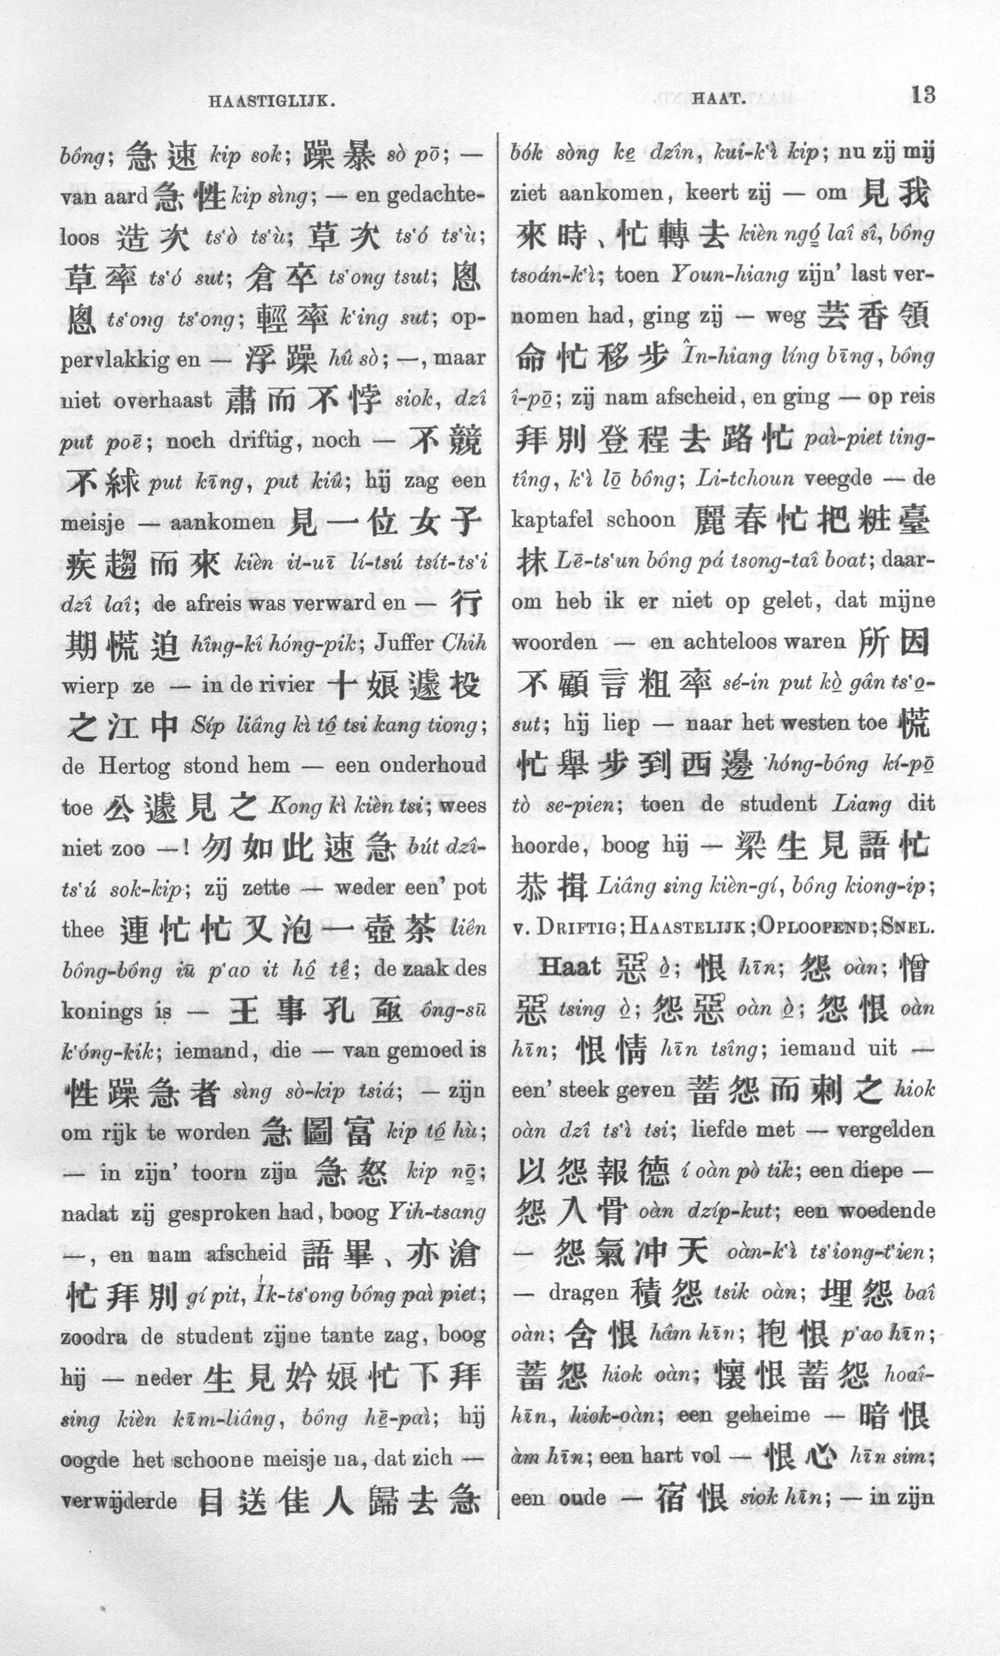 HAASTIGLIJK.
HAAT.
13
bóng; 急速 kip sok; 躁暴 sò pō; —
van aard 急性 kip sìng; — en gedachte-
loos 造次 ts‘ò ts‘ù; 草次 ts‘ó ts‘ù;
草率 ts‘ó sut; 倉卒 ts‘ong tsut; 悤
悤 ts‘ong ts‘ong; 輕率 k‘ing sut; op-
pervlakkig en — 浮躁 hû sò; —, maar
niet overhaast 肅而不悖 siok, dzî
put poē; noch driftig, noch — 不競
不絿 put kīng, put kiû; hij zag een
meisje — aankomen 見一位女子
疾趨而來 kièn it-uī lí-tsú tsít-ts‘i
dzî laî; de afreis was verward en — 行
期慌迫 hîng-kî hóng-pik; Juffer Chih
wierp ze — in de rivier 十娘遽投
之江中 Síp liâng kì tô̤ tsi kang tiong;
de Hertog stond hem — een onderhoud
toe 公遽見之 Kong kì kièn tsi; wees
niet zoo —! 勿如此速急 bút dzî-
ts‘ú sok-kip; zij zette — weder een’ pot
thee 連忙忙又泡一壺茶 liên
bông-bông iū p‘ao it hô̤ tê̤; de zaak des
konings is — 王事孔亟 ông-sū
k‘óng-kik; iemand, die — van gemoed is
性躁急者 sìng sò-kip tsiá; — zijn
om rijk te worden 急圖富 kip tô̤ hù;
— in zijn’ toorn zijn 急怒 kip nō̤;
nadat zij gesproken had, boog Yih-tsang
—, en nam afscheid 語畢、亦滄
忙拜別 gí pit, Ík-ts‘ong bông paì piet;
zoodra de student zijne tante zag, boog
hij — neder 生見妗娘忙下拜
sing kièn kīm-liâng, bông hē̤-paì; hij
oogde het schoone meisje na, dat zich —
verwijderde 目送佳人歸去急
bók sòng ke̤ dzîn, kui-k‘ì kip; nu zij mij
ziet aankomen, keert zij — om 見我
來時、忙轉去 kièn ngó̤ laî sî, bông
tsoán-k‘ì; toen Youn-hiang zijn’ last ver-
nomen had, ging zij — weg 芸香領
命忙移步 În-hiang líng bīng, bông
î-pō̤; zij nam afscheid, en ging — op reis
拜別登程去路忙 paì-piet ting-
tîng, k‘ì lō̤ bông; Li-tchoun veegde — de
kaptafel schoon 麗春忙把粧臺
抹 Lē-ts‘un bông pá tsong-taî boat; daar-
om heb ik er niet op gelet, dat mijne
woorden — en achteloos waren 所因
不顧言粗率 sé-in put kò̤ gân ts‘o̤-
sut; hij liep — naar het westen toe 慌
忙舉步到西邊 hóng-bông kí-pō̤
tò se-pien; toen de student Liang dit
hoorde, boog hij — 梁生見語忙
恭揖 Liâng sing kièn-gí, bông kiong-ip;
v. DRIFTIG; HAASTELIJK; OPLOOPEND; SNEL.
Haat 惡 ò̤; 恨 hīn; 怨 oàn; 憎
惡 tsing ò̤; 怨惡 oàn ò̤; 怨恨 oàn
hīn; 恨情 hīn tsîng; iemand uit —
een’ steek geven 蓄怨而刺之 hiok
oàn dzî ts‘ì tsi; liefde met — vergelden
以怨報德 í oàn pò tik; een diepe —
怨入骨 oàn dzíp-kut; een woedende
— 怨氣冲天 oàn-k‘ì ts‘iong-t‘ien;
— dragen 積怨 tsik oàn; 埋怨 baî
oàn; 含恨 hâm hīn; 抱恨 p‘ao hīn;
蓄怨 hiok oàn; 懷恨蓄怨 hoaî-
hīn, hiok-oàn; een geheime — 暗恨
àm hīn; een hart vol — 恨心 hīn sim;
een oude — 宿恨 siok hīn; — in zijn